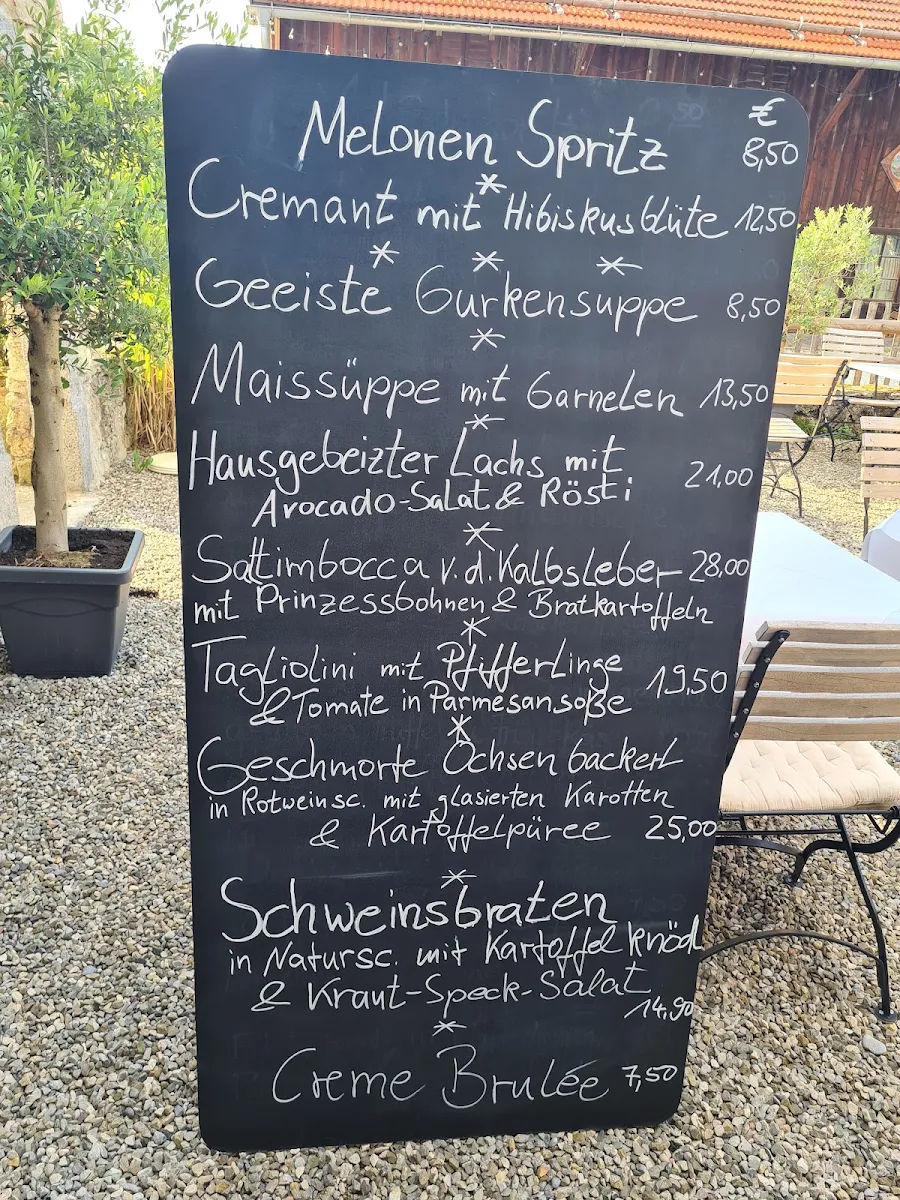 €
Melonen Spritz 8,50
*
Cremant mit Hibiskusblüte 12,50
* * *
Geeiste Gurkensuppe 8,50
*
Maissüppe mit Garnelen 13,50
*
Hausgebeizter Lachs mit
Avocado-Salat & Rösti 21,00
*
Saltimbocca v.d. Kalbsleber 28,00
mit Prinzessbohnen & Bratkartoffeln
*
Tagliolini mit Pfifferlinge
& Tomate in Parmesansoße 19,50
*
Geschmorte Ochsenbackerl
in Rotweinsc. mit glasierten Karotten
& Kartoffelpüree 25,00
*
Schweinsbraten
in Natursc. mit Kartoffelknödl
& Kraut-Speck-Salat
14,90
*
Creme Brulée 7,50